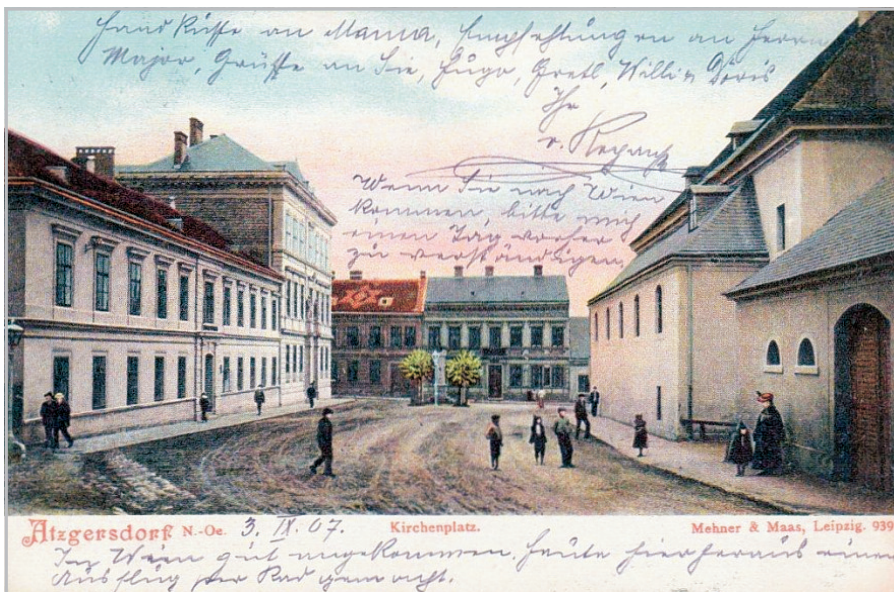 Handküsse an Mama, Empfehlungen an Herrn
Major, Grüsse an Sie, Hugo, Gretl, Willi u Doris
Ihr
v.
Wenn Sie nach Wien
kommen, bitte mich
einen Tag vorher
zu verständigen
Atzgersdorf N.-Oe. 3. IX. 07. Kirchenplatz. Mehner & Maas, Leipzig. 939
In Wien gut angekommen. Heute hierheraus einen
Ausflug per Rad gemacht.